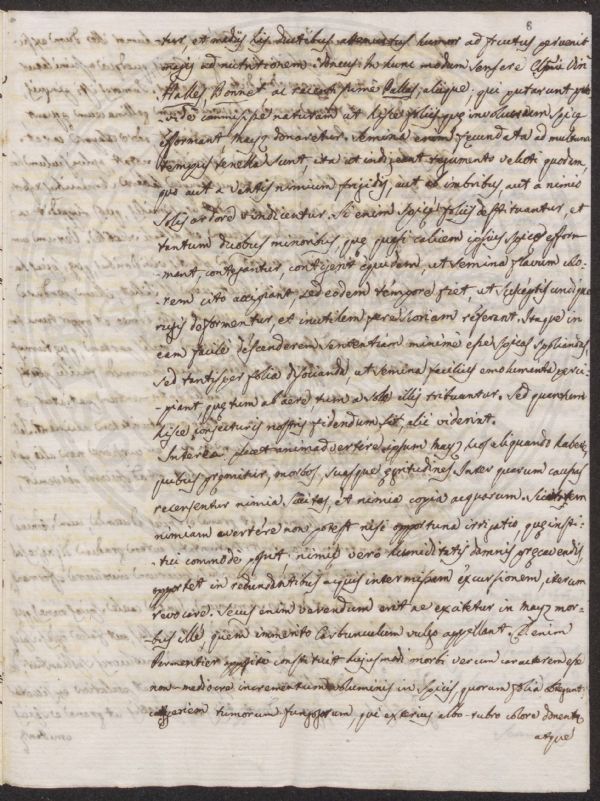 6
tur, et mediis his ductibus attenuatus humor ad fructus pervenit
ad nutritionem idoneus: in hunc modum sensere
Halles, Bonnet ac recentissime Pallas, aliique; qui putarunt
omnis, pe naturam ut hisce foliis quę involucrum spicę
efformant mays donaretur. Semina enim fecundata ad multum
tempus tenella sunt, ita ut indigeant tegumento veluti quodam,
quo aut a ventis nimium frigidis, aut ab imbribus aut a nimio
solis ardore vindicentur. Si enim spicę foliis destituantur, et
tantum duobus minoribus, quę quasi calicem ipsius spicę effor-
mant, contegantur, continget equidem, ut semina flavum colo-
rem cito accipiant sed eodem tempore fiet, ut susceptis undique
rugis deformentur, et inutilem referant. Itaque in
eam facile descenderem sententiam minime esse spicas spoliandas,
sed tantisper folia dissocianda, ut semina facilius emolumenta perci-
piant, quę tum ab aere, tum a sole illis tribuantur. Sed quantum
hisce conjecturis nostris fidendum sit, alii viderint.
Interea placet animadvertere ipsum mays, uos aliquando habere,
quibus premitur, morbos, suasque ęgritudines. Inter quarum causas
recensentur nimia siccitas, et nimia copia aquarum. Siccitatem
nimiam avertere non potest nisi opportuna irrigatio, quę insti-
tui commode possit; nimię vero humiditatis damnis pręcavendis,
oportet in redundantibus aquis intermissam excursionem, iterum
revocare. Secus enim verendum erit ne excitetur in mays mor-
bus ille, quem immerito Carbunculum vulgo appellant. Etenim
Parmentier apposite constituit hujusmodi morbi verum caracterem esse
non mediocre incrementum voluminis in spicis quorum folia abeunt
in congeriem tumorum fungosorum, qui exterius albo-rubro colore donentur
atque